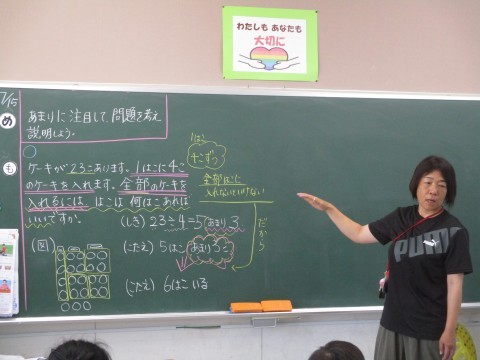 わたしも あなたも
大切に
7/15
め
あまりに注目して、問題を考え
説明しよう。
も
ケーキが23こあります。1はこに4こ
のケーキを入れます。全部のケーキを
入れるには、はこは何はこあれば
いいですか。
1はこ
4こずつ
全部はこに
入れないといけない
(しき) 23÷4=5あまり3
だから
(図)
(こたえ) 5はこあまり3こ
(こたえ) 6はこいる
PUMA